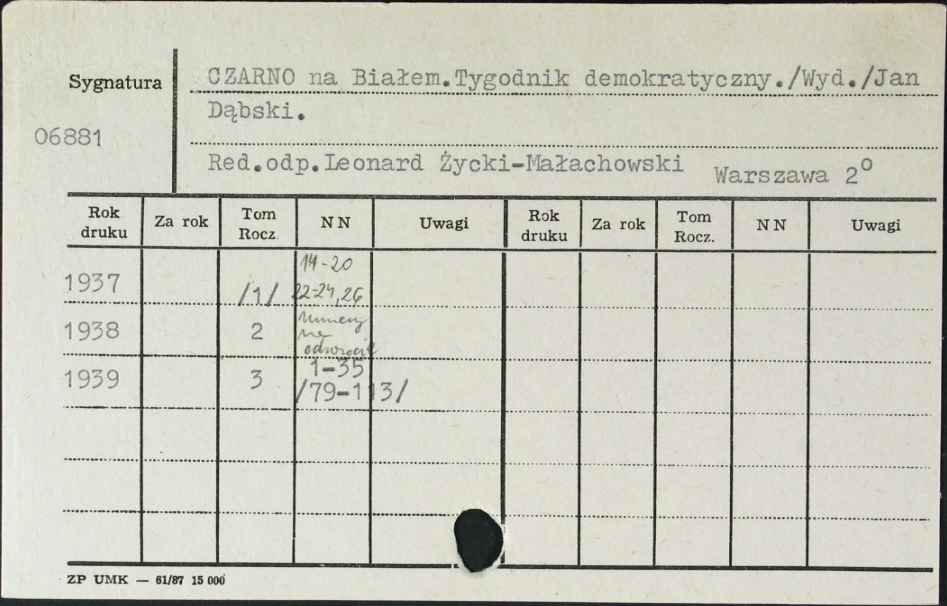 Sygnatura
CZARNO na Białem.Tygodnik demokratyczny./Wyd./Jan
Dąbski.
06881
Red.odp.Leonard Życki-Małachowski Warszawa 2°
Rok druku Za rok Tom Rocz. NN Uwagi Rok druku Za rok Tom Rocz. NN Uwagi
14-20
1937 /1/ 22-24,26
1938 2 numery
na
odwrocie
1939 3 1-35
/79-113/
ZP UMK — 61/87 15 000